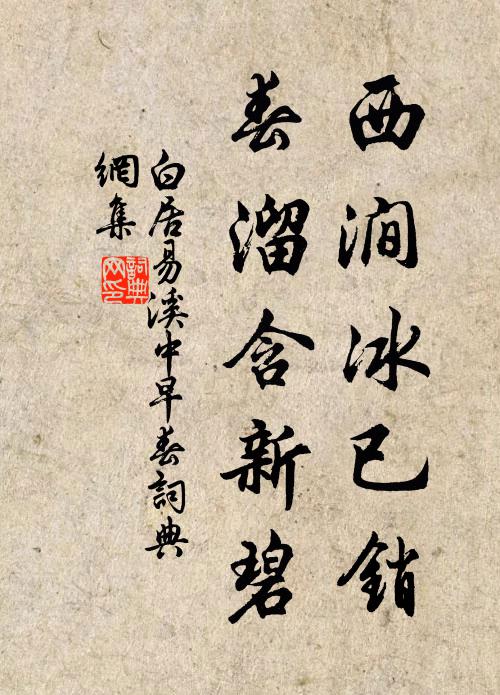 西澗冰已銷
春溜含新碧
白居易溪中早春詞典
網集
詞典
网印